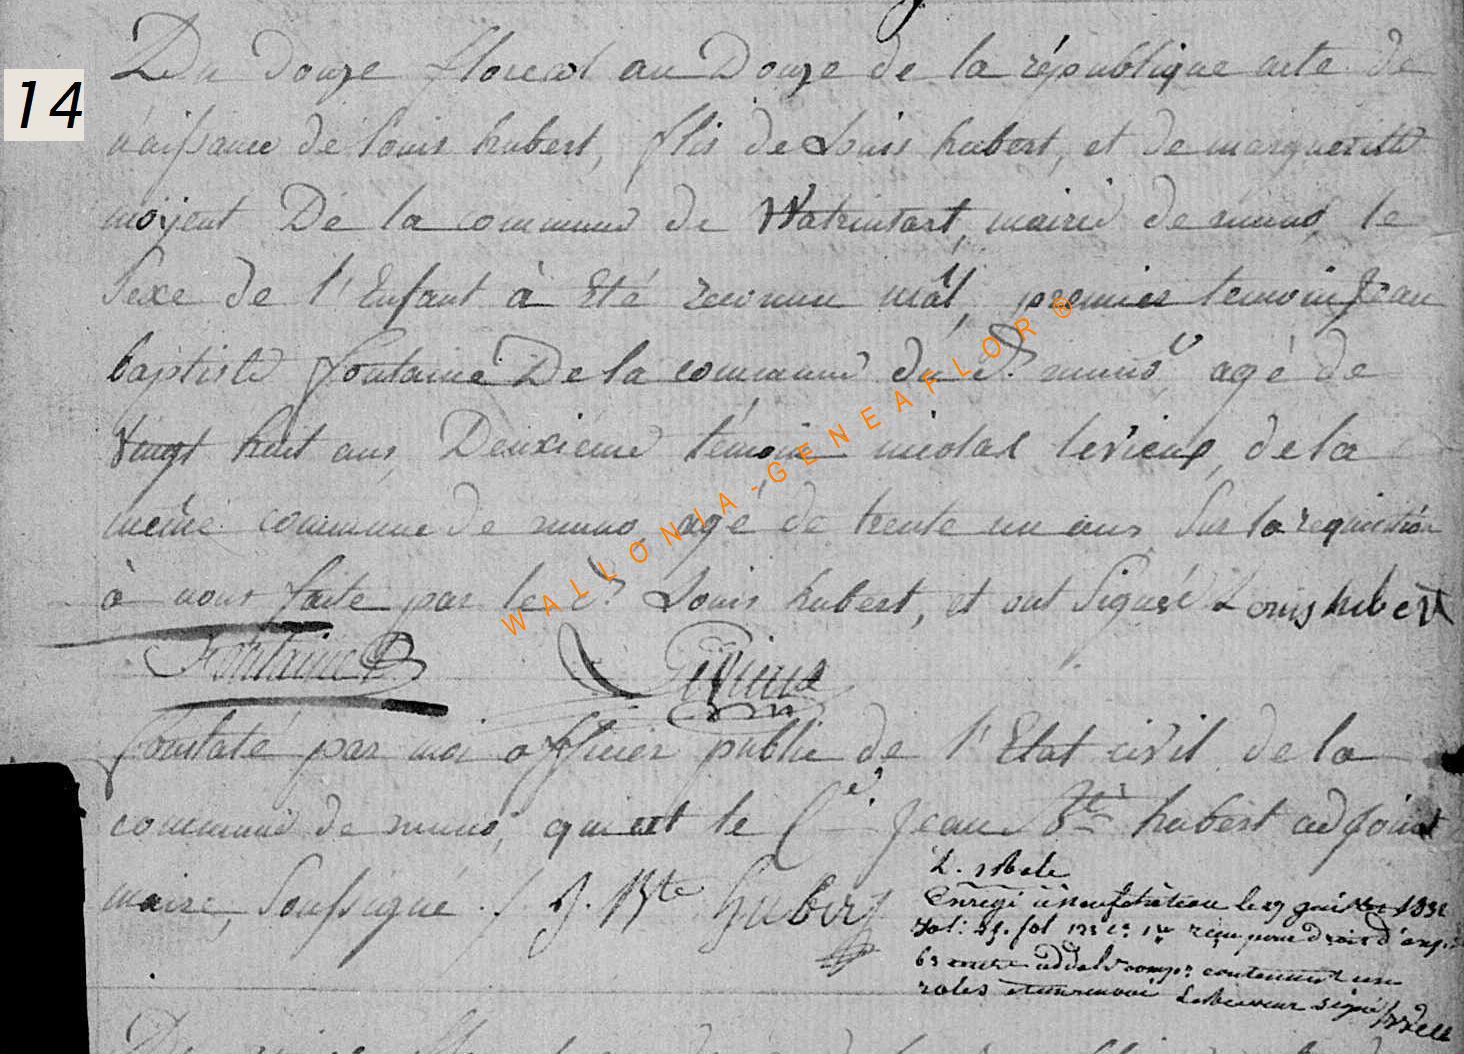 14
Du douze floreal an Douze de la république acte de
naissance de louis hubert, fils de Louis hubert, et de margueritte
moÿent De la commune de Watrinsart, mairie de muno, le
Sexe de l'Enfant à Eté reconnu mâl, premier temoin Jean
baptiste fontaine De la commune du d.t muno, agé de
Vingt huit ans, Deuxieme témoin nicolas levieux, de la
même commune de muno, agé de trente un ans, Sur la requisition
à nous faite par le c.n Louis hubert, et ont Signéé Louis hubert
Fontaine
Constaté par moi officier public de l'Etat civil de la
commune de muno, qui est le C.en Jean B.te hubert adjoint
maire, Soussigné /. J. Bte Hubert
Enregé à neufchâteau le 27
vol: fol reçu pour droit d'
contenant un
roles Le Receveur signé
WALLONIA-GENEAFLOR®